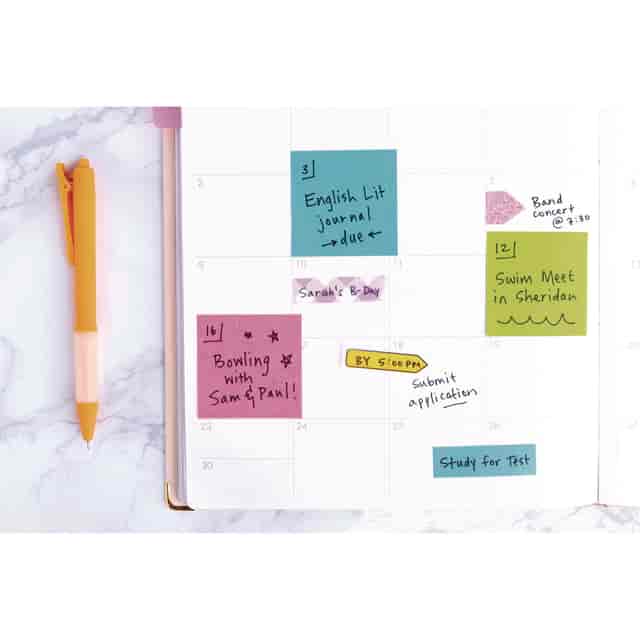 2
3
English Lit
journal
→due←
Band
concert
@ 7:30
9
10
11
12
Swim Meet
in Sheridan
Sarah's B-Day
16
Bowling
with
Sam & Paul!
BY 5:00 PM
Submit
application
18
19
23
24
25
26
Study for Test
30